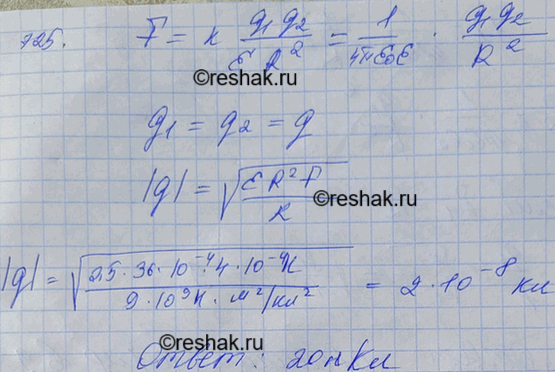 725. F = k q₁ q₂ / ε R² = 1 / 4πε₀ε · q₁ q₂ / R²
©reshak.ru
q₁ = q₂ = q
|q| = √(ε R² F / k)
©reshak.ru
|q| = √(2,5 · 36 · 10⁻⁴ · 4 · 10⁻⁴ Н / 9 · 10⁹ Н · м²/кл²) = 2 · 10⁻⁸ кл
©reshak.ru
Ответ: 20 нКл